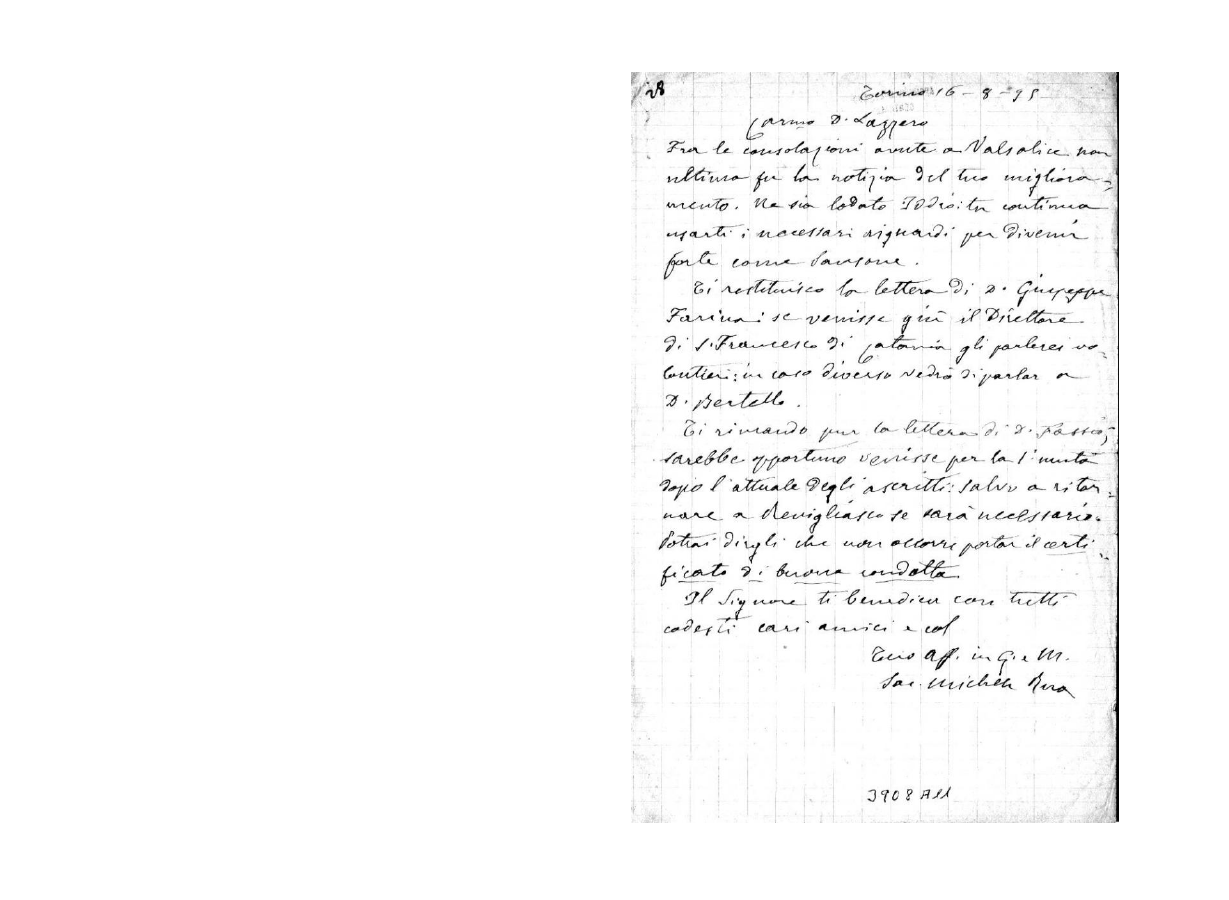 28
Torino 16-8-95
Carmo D. Lazzero
Fra le consolazioni avute a Valsalice non
ultima fu la notizia del tuo migliora-
mento. Ne sia lodato Iddio: tu continua
usarti i necessari riguardi per divenir
forte come Sansone.
Ti restituisco la lettera di D. Giuseppe
Farina: se venisse giù il Direttore
di S. Francesco di Catania gli parlerei vo-
lontieri: in caso diverso vedrò di parlar a
D. Bertello.
Ti rimando pur la lettera di D. Fassio;
sarebbe opportuno venisse per la 1a muta
dopo l'attuale degli ascritti: salvo a ritor-
nare a Revigliasco se sarà necessario.
Potrai dirgli che non occorre portar il certi-
ficato di buona condotta.
Il Signore ti benedica con tutti
codesti cari amici e col
Tuo Aff. in G. e M.
Sac. Michele Rua
3908 A11